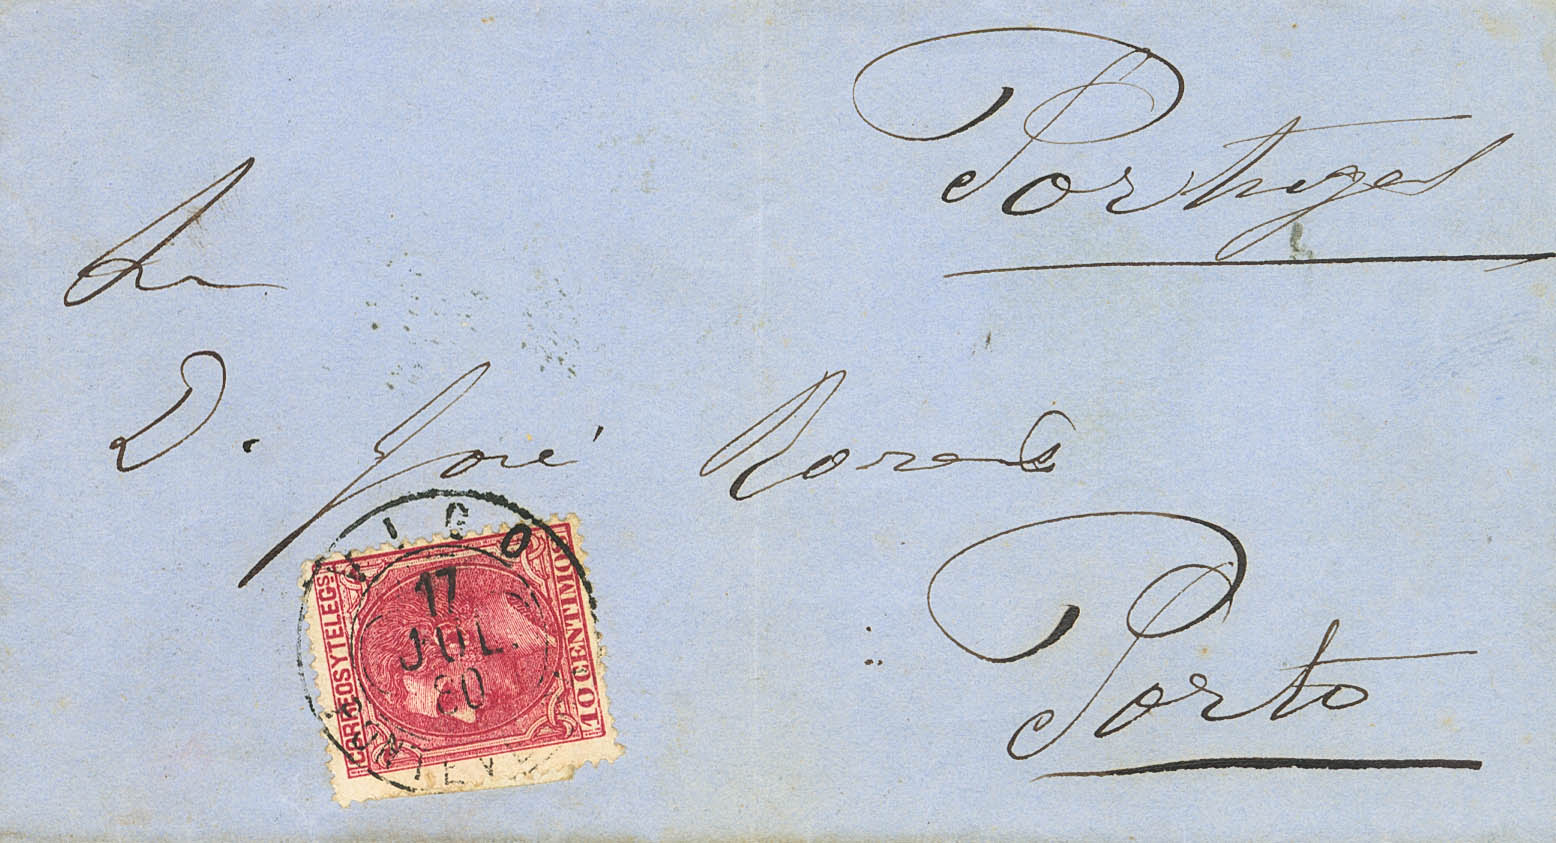 Portugal
Sr
D. José
Porto
CORREOS Y TELEGS
10 CENTIMOS
VIGO
17
JUL.
80
PONTEV